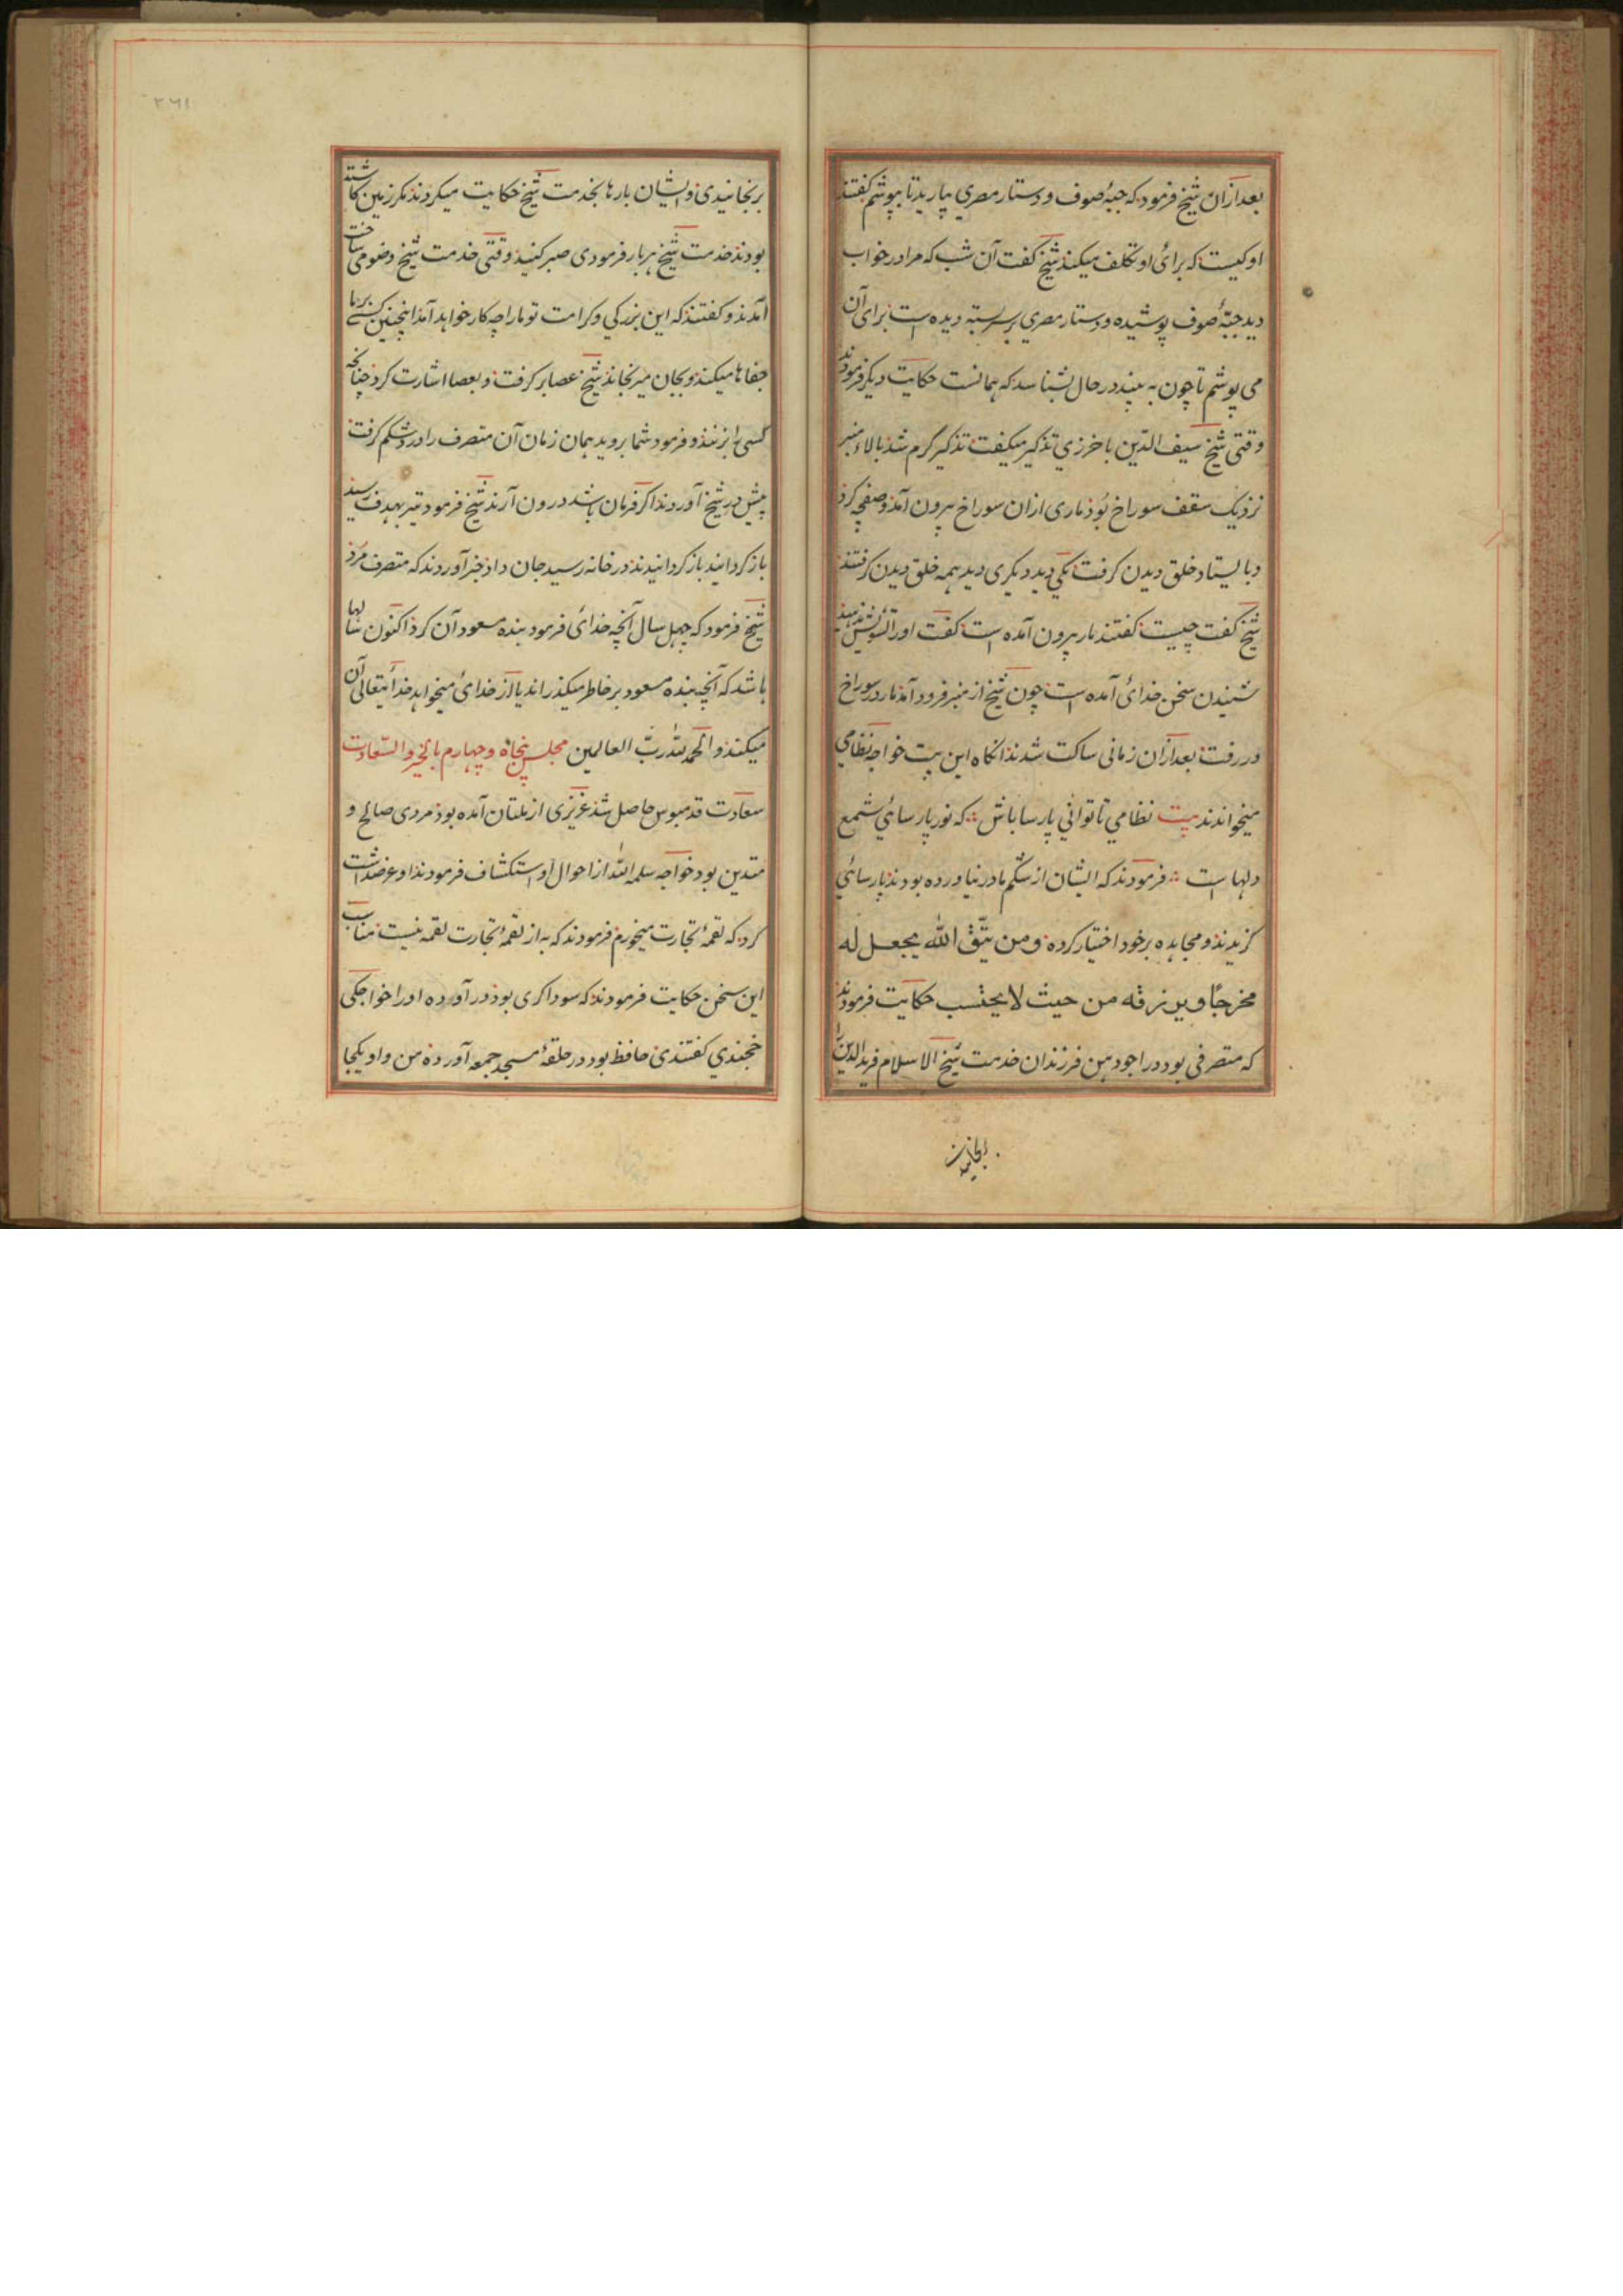 بعد ازان شیخ فرمود که جبۀ صوف و دستار مصری بیارید تا بپوشم گفتند
او کیست که برای او تکلف میکنند شیخ گفت آن شب که مرا در خواب
دید جبۀ صوف پوشیده و دستار مصری بر سر بسته دیده است برای آن
می پوشم تا چون به بیند در حال بشناسد که همانست حکایت دیگر فرمودند
وقتی شیخ سیف الدین باخرزی تذکیر میگفت تذکیر گرم شد بالاء منبر
نزدیک سقف سوراخ بود ماری ازان سوراخ بیرون آمد و کرد
و بایستاد خلق دیدن گرفت یکی دید دیگری دید همه خلق دیدن گرفتند
شیخ گفت چیست گفتند مار بیرون آمده است گفت او را تشویش ندهید
شنیدن سخن خدای آمده است چون شیخ از منبر فرود آمد مار در سوراخ
در رفت بعد ازان زمانی ساکت شدند انگاه این بیت خواجه نظامی
میخواندند بیت نظامی تا توانی پارسا باش که نور پارسائی شمع
دلها است فرمودند که ایشان از شکم مادر نیاورده بودند پارسائی
گزیدند و مجاهده بر خود اختیار کرده ومن یتّق الله یجعل له
مخرجًا ویرزقه من حیث لا یحتسب حکایت فرمودند
که متصرفی بود در اجودهن فرزندان خدمت شیخ الاسلام فرید الدین را
برنجانیدی و ایشان بارها بخدمت شیخ حکایت میکردند مگر زمین کاشته
بودند خدمت شیخ هر بار فرمودی صبر کنید وقتی خدمت شیخ وضو می ساخت
آمدند و گفتند که این بزرگی و کرامت تو ما را چه کار خواهد آمد اینچنین کسی بر ما
جفاها میکند و بجان میرنجاند شیخ عصا بر گرفت و بعصا اشارت کرد چنانچه
کسی را بزنند و فرمود شما بروید همان زمان آن متصرف را درد شکم گرفت
پیش در شیخ آوردند اگر فرمان باشد درون آرند شیخ فرمود تیر بهدف رسید
باز گردانید باز گردانیدند در خانه رسید جان داد خبر آوردند که متصرف مرد
شیخ فرمود که چهل سال آنچه خدای فرمود بنده مسعود آن کرد اکنون سالها
باشد که آنچه بنده مسعود بر خاطر میگذراند یا از خدای میخواهد خدایتعالی آن
میکند والحمد لله ربّ العالمین مجلس پنجاه و چهارم بالخیر والسّعادت
سعادت قدمبوس حاصل شد عزیزی از ملتان آمده بود مردی صالح و
متدین بود خواجه سلمه الله از احوال او استکشاف فرمودند او عرضداشت
کرد که لقمۀ تجارت میخورم فرمودند که به از لقمۀ تجارت لقمه نیست مناسب
این سخن حکایت فرمودند که سوداگری بود در آورده او را خواجگی
خجندی گفتندی حافظ بود در حلقۀ مسجد جمعه آورده من و او یکجا
۲۶۱